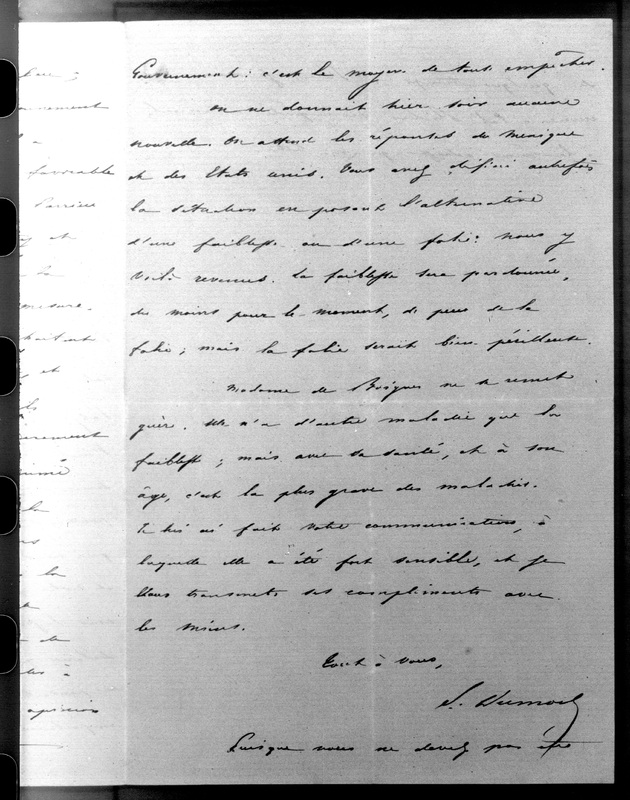 Gouvernement : c'est le moyen de tout empêcher.
On ne donnait hier soir aucune
nouvelle. On attend les réponses du Mexique
et des Etats unis. Vous avez défini autrefois
la situation en posant l'alternative
d'une faiblesse ou d'une folie : nous y
voilà revenus. La faiblesse sera pardonnée,
du moins pour le moment, de peur de la
folie ; mais la folie serait bien périlleuse.
Madame de Boignes ne se remet
guère. Elle n'a d'autre maladie que la
faiblesse ; mais avec sa santé, et à son
âge, c'est la plus grave des maladies.
Je lui ai fait votre communication, à
laquelle elle a été fort sensible, et je
vous transmets ses compliments avec
les miens.
Tout à vous,
S. Dumon
Puisque vous ne devez pas être
favorable
mesure.
et
la
de
à
opinion